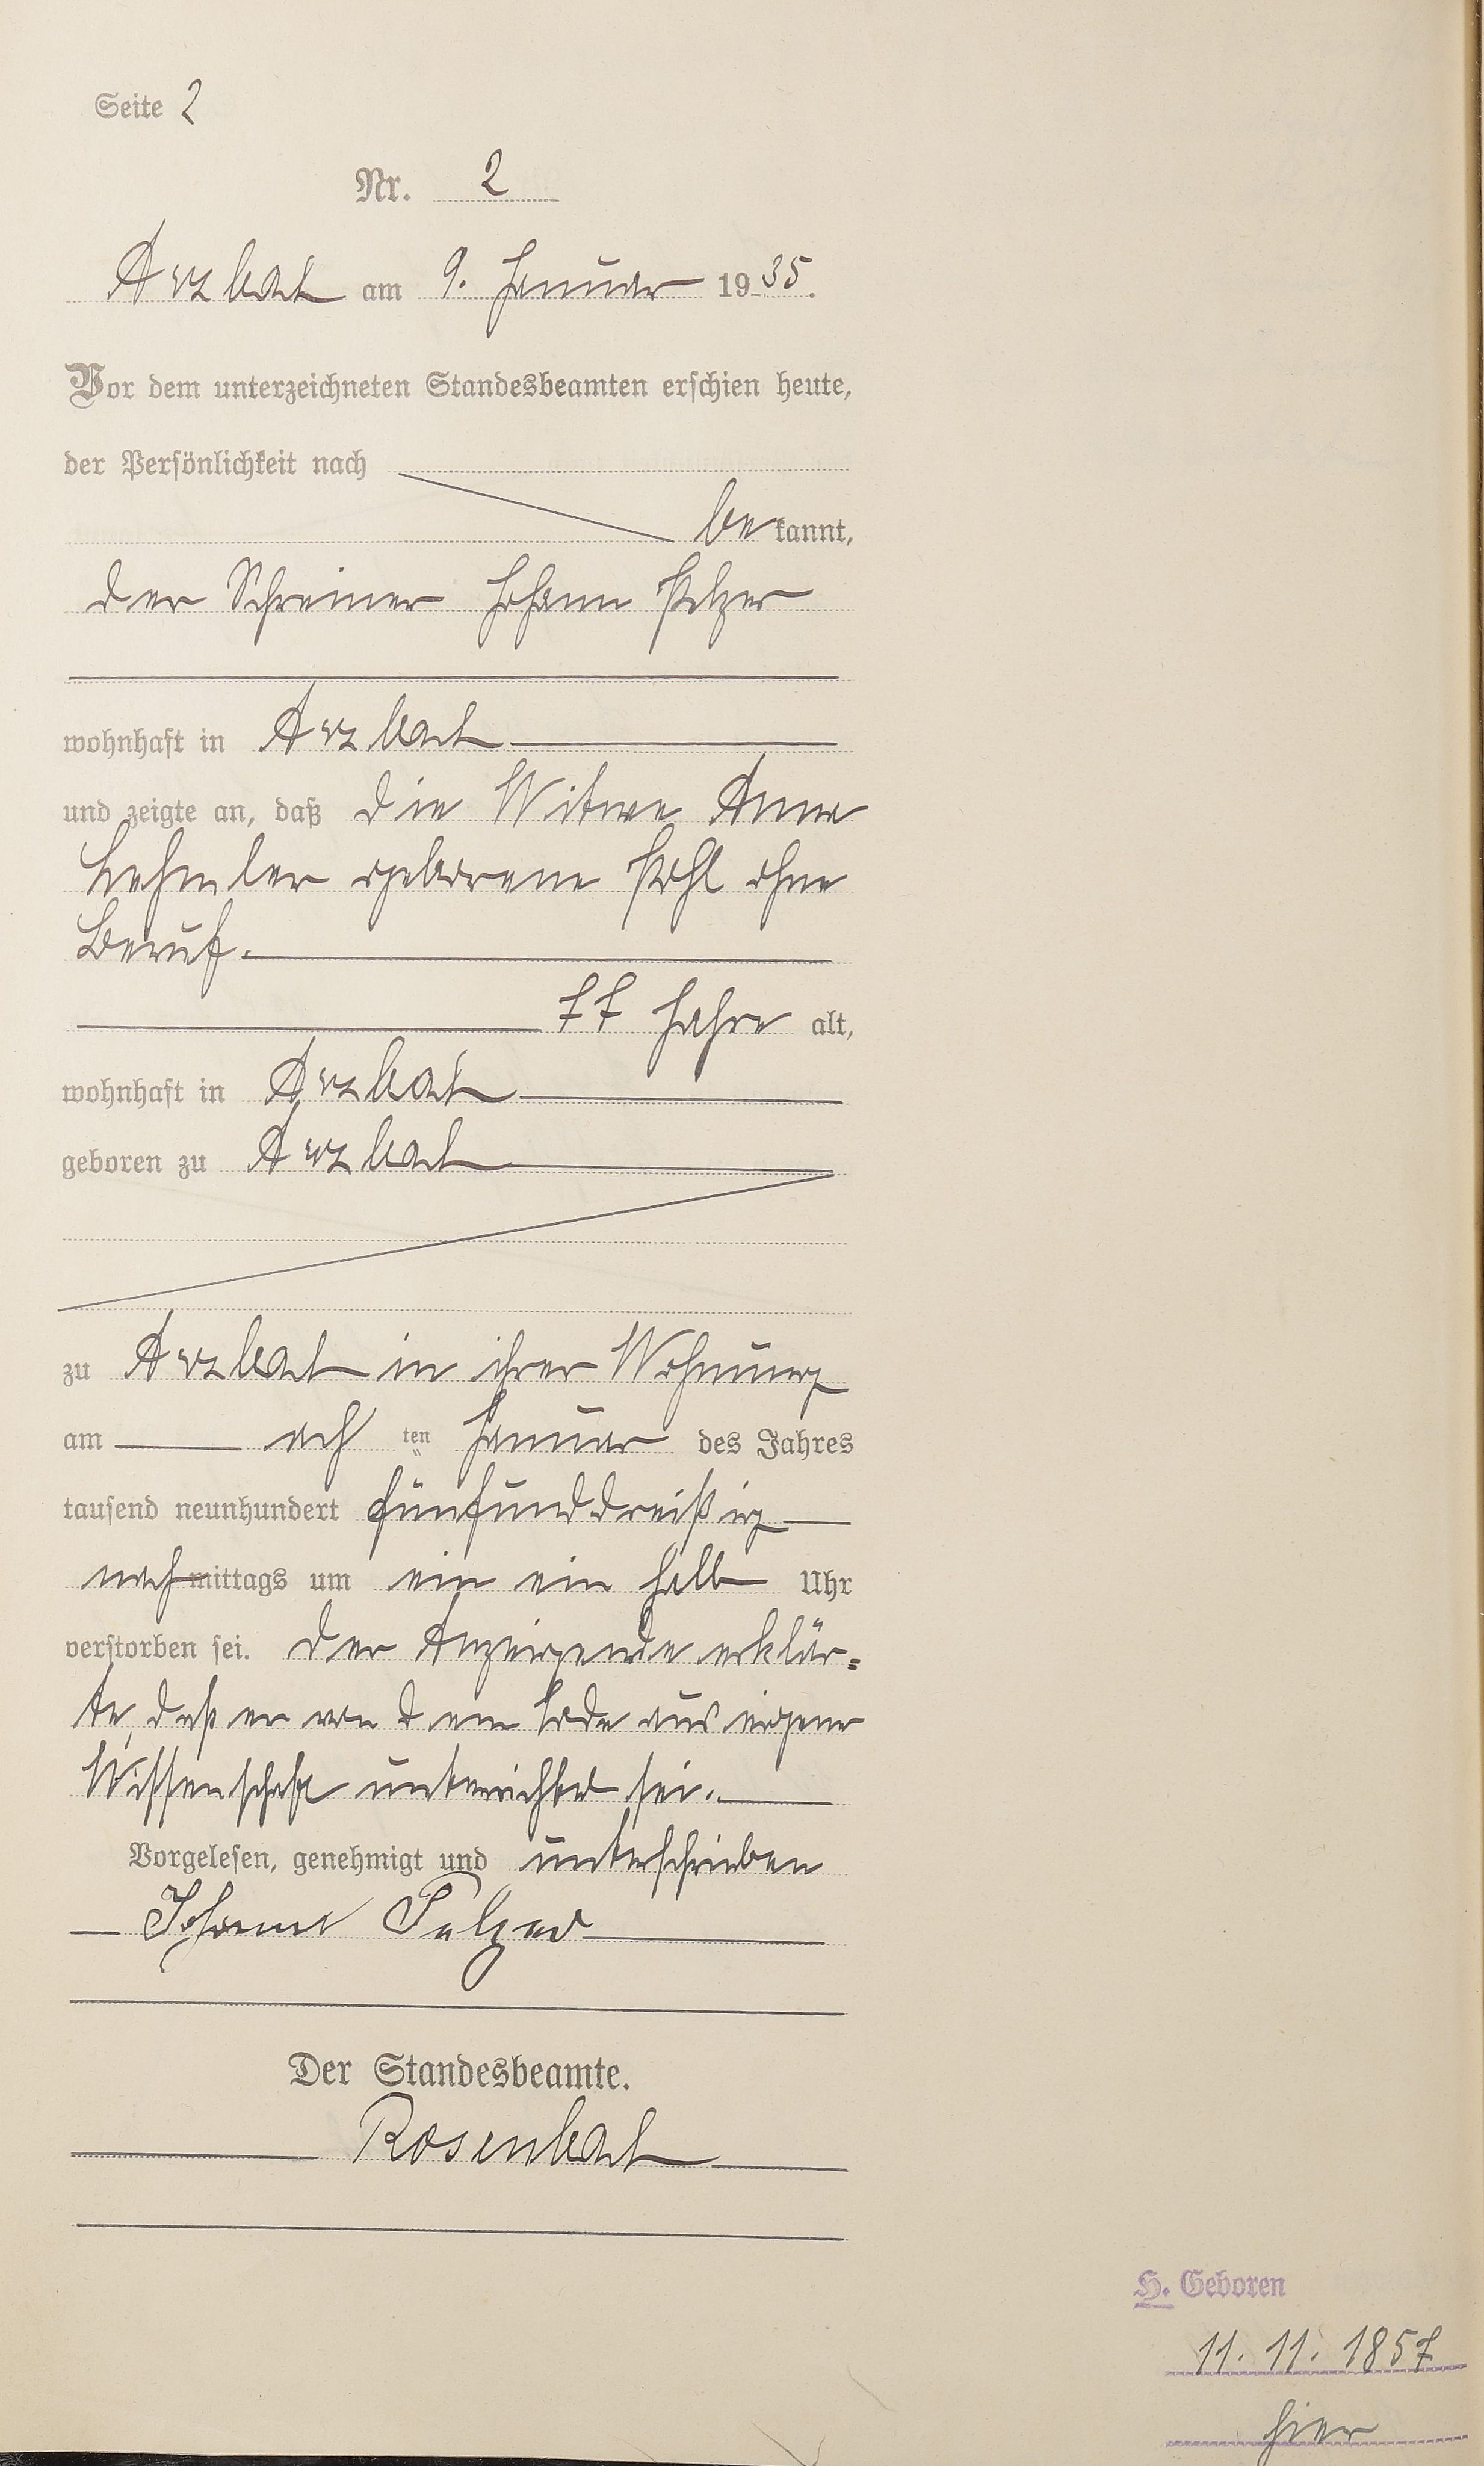 Seite 2
Nr. 2
Arzbach am 9. Januar 1935.
Vor dem unterzeichneten Standesbeamten erschien heute,
der Persönlichkeit nach
bekannt,
der Schreiner Johann Pelzer
wohnhaft in Arzbach
und zeigte an, daß die Witwe Anna
geborene Pohl ohne
Beruf.
77 Jahre alt,
wohnhaft in Arzbach
geboren zu Arzbach
zu Arzbach in ihrer Wohnung
am ach ten Januar des Jahres
tausend neunhundert fünfunddreißig
nachmittags um ein ein halb Uhr
verstorben sei. Der Anzeigende erklär=
te, daß er von dem Tode aus eigener
Wissenschaft unterrichtet sei.
Vorgelesen, genehmigt und unterschrieben
Johann Pelzer
Der Standesbeamte.
Rosenbach
H. Geboren
11. 11. 1857
hier